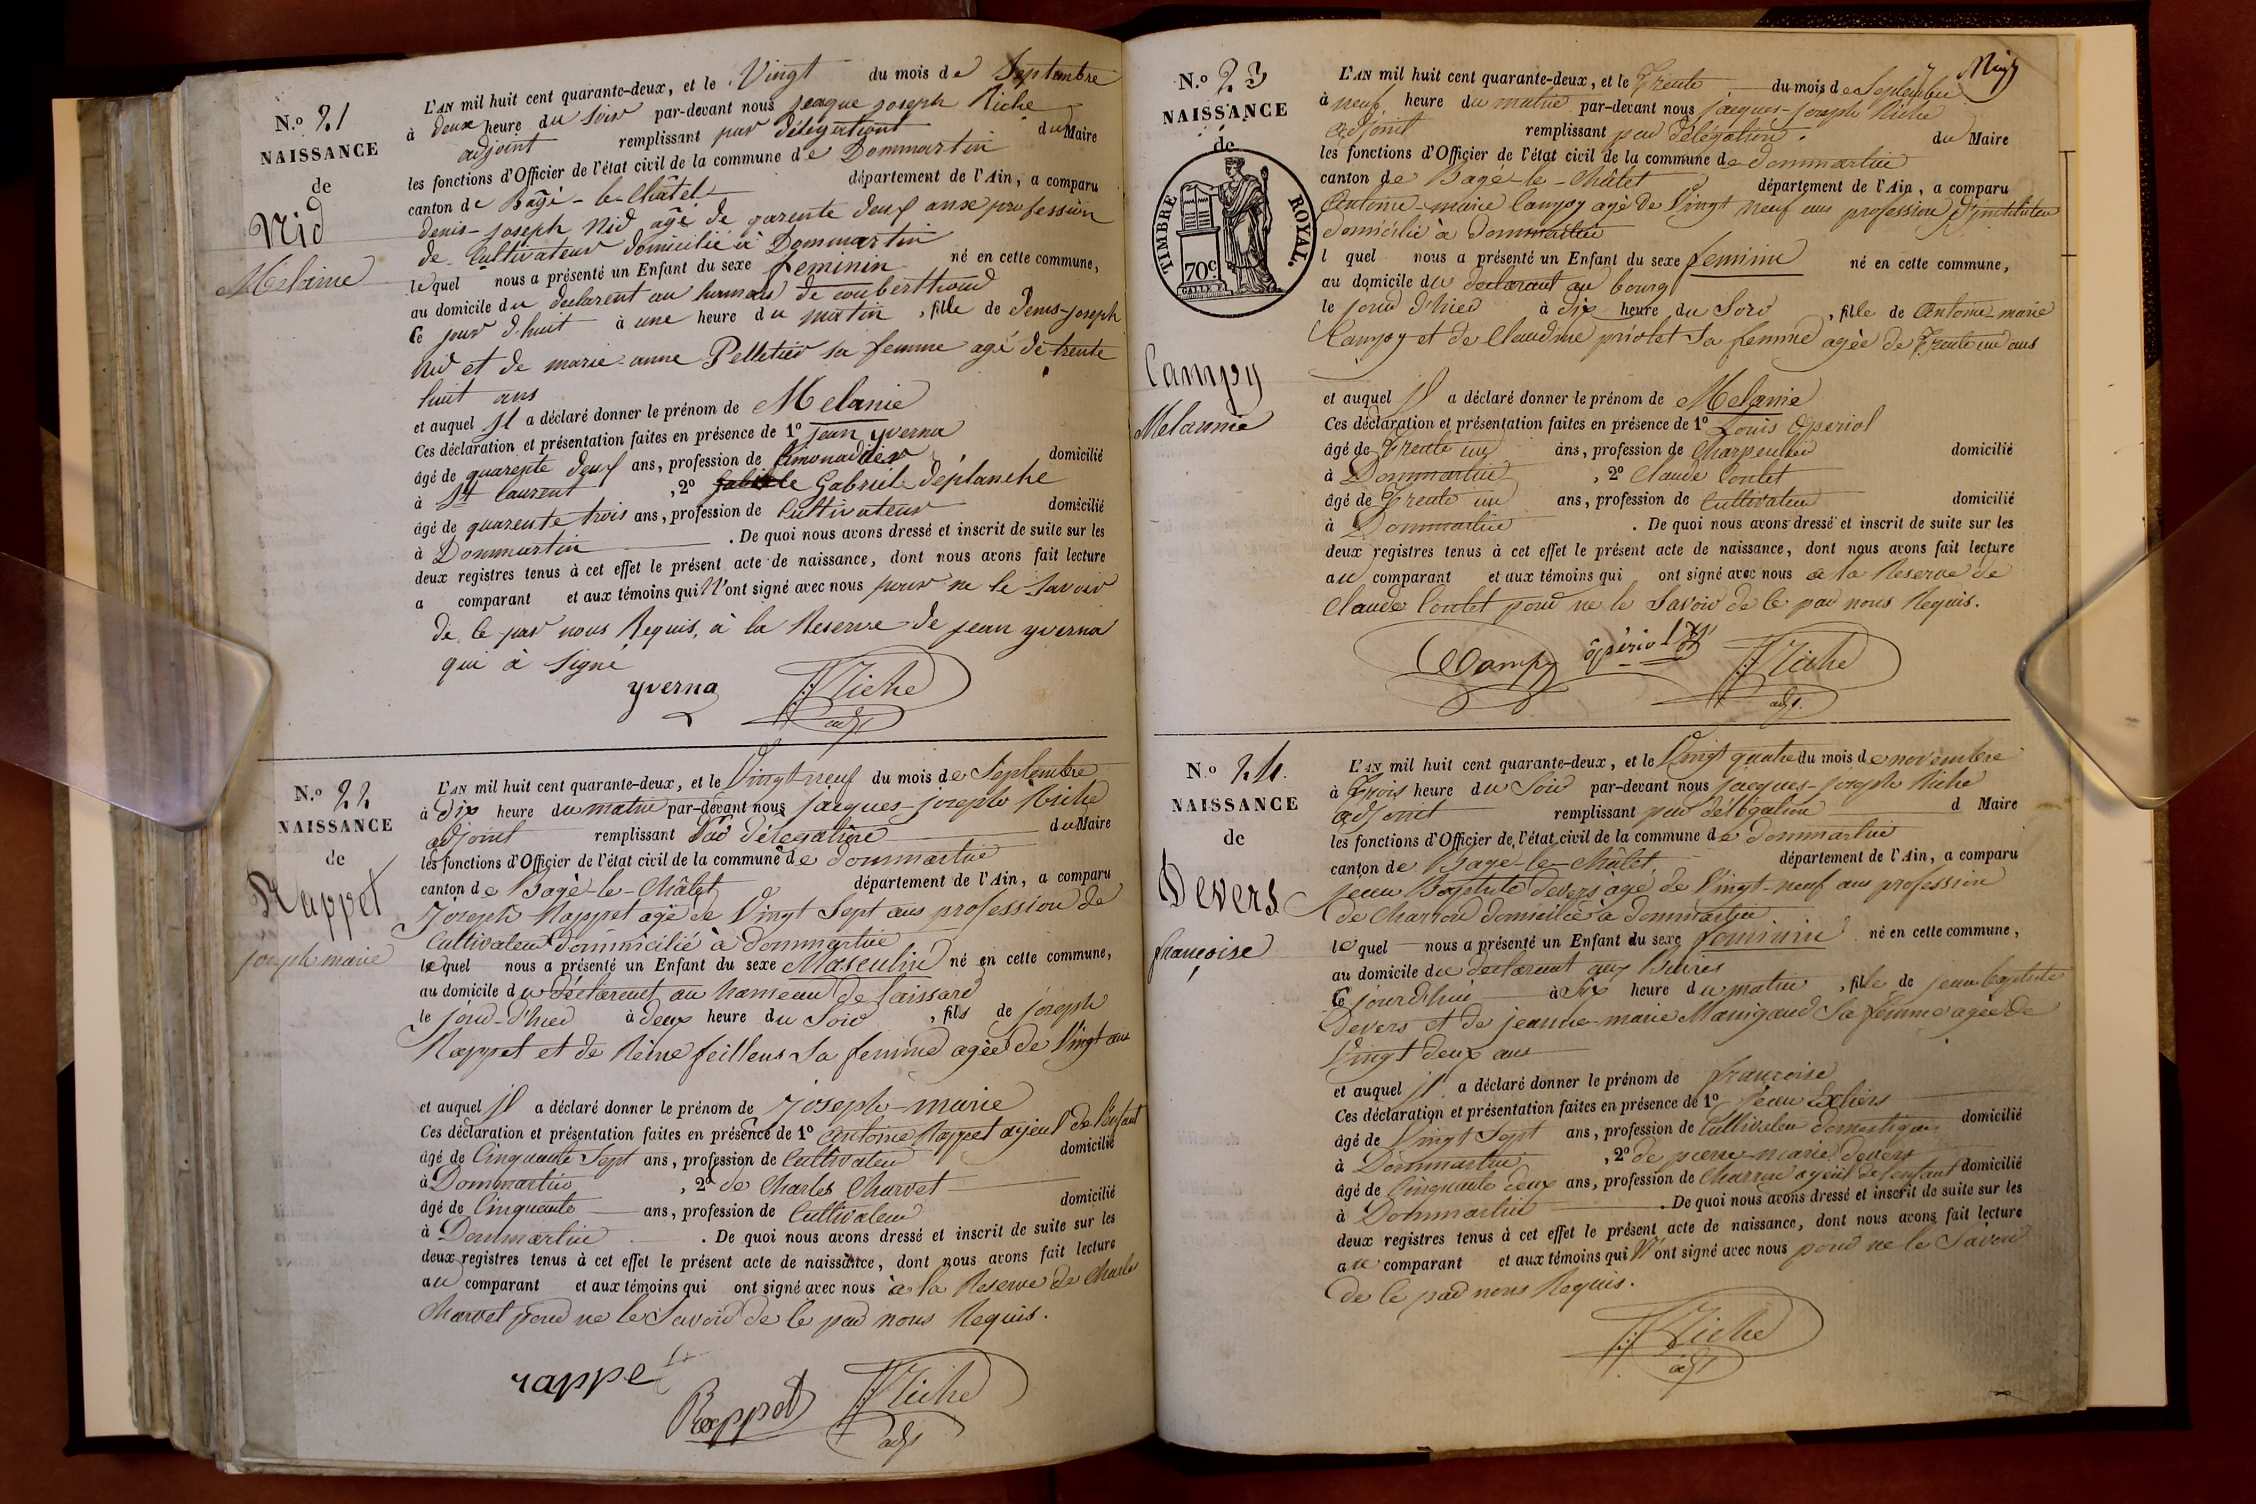 N.o 21
NAISSANCE
de
Nid
Melanie
L'AN mil huit cent quarante-deux, et le Vingt du mois de Septembre
à deux heure du soir par-devant nous Jeaque joseph Riche
adjoint remplissant par délégationt du Maire
les fonctions d'Officier de l'état civil de la commune de Dommartin
canton de Bagé-le-Châtel département de l'Ain, a comparu
denis-joseph Nid agé de quarente deux anse profession
de Cultivateur domicilié à Dommartin
lequel nous a présenté un Enfant du sexe feminin né en cette commune,
au domicile du declarent au humau de
Ce jour d'huit à une heure du matin, fille de Denis-joseph
Nid et de marie-anne Pelletier sa femme agé de trente
huit ans
et auquel Jl a déclaré donner le prénom de Melanie
Ces déclaration et présentation faites en présence de 1º jean yverna
âgé de quarente deux ans, profession de limonadier domicilié
à St laurent, 2º Gabriel déplanche
âgé de quarente trois ans, profession de Cultivateur domicilié
à Dommartin. De quoi nous avons dressé et inscrit de suite sur les
deux registres tenus à cet effet le présent acte de naissance, dont nous avons fait lecture
a comparant et aux témoins qui N'ont signé avec nous pour ne le savoir
de ce par nous Requis, à la Reserve de jean yverna
qui à signé
yverna JJRiche
adjt
N.o 22
NAISSANCE
de
Rappet
joseph marie
L'AN mil huit cent quarante-deux, et le Vingt-neuf du mois de Septembre
à dix heure du matin par-devant nous jacques-joseph Riche
adjoint remplissant par délégation du Maire
les fonctions d'Officier de l'état civil de la commune de dommartin
canton de Bagé-le-Châtel département de l'Ain, a comparu
Joseph Rappet agé de Vingt Sept ans profession de
Cultivateur domicilié à dommartin
lequel nous a présenté un Enfant du sexe Masculin né en cette commune,
au domicile du déclarent au hameau de laissard
le jour-d'hier à deux heure du Soir, fils de joseph
Rappet et de Reine feillens sa femme agée de Vingt ans
et auquel Jl a déclaré donner le prénom de joseph-marie
Ces déclaration et présentation faites en présence de 1º antoine Rappet ayeul de l'enfant
âgé de Cinquante Sept ans, profession de Cultivateur domicilié
à Dommartin, 2º de Charles Charvet
âgé de Cinquante ans, profession de Cultivateur domicilié
à Dommartin. De quoi nous avons dressé et inscrit de suite sur les
deux registres tenus à cet effet le présent acte de naissance, dont nous avons fait lecture
au comparant et aux témoins qui ont signé avec nous à la Reserve de Charles
Charvet pour ne le Savoir de ce par nous Requis.
rappet
Rappet JJRiche
adjt
N.o 23
NAISSANCE
de
TIMBRE ROYAL.
70c
Campy
Melannie
L'AN mil huit cent quarante-deux, et le Trente du mois de Septembre
à neuf heure du matin par-devant nous jacques-joseph Riche
adjoint remplissant par délégation. du Maire
les fonctions d'Officier de l'état civil de la commune de dommartin
canton de Bagé-le-Châtel département de l'Ain, a comparu
Antoine-marie Campy agé de Vingt neuf ans profession d'instituteur
domicilié à dommartin
l quel nous a présenté un Enfant du sexe feminin né en cette commune,
au domicile du declarant au bourg
le jour d'hier à dix heure du Soir, fille de Antoine-marie
Campy et de Claudine sa femme agée de Trente un ans
et auquel Jl a déclaré donner le prénom de Melanie
Ces déclaration et présentation faites en présence de 1º Louis Operiol
âgé de Trente un ans, profession de Charpentier domicilié
à Dommartin, 2º Claude Coulet
âgé de Trente un ans, profession de Cultivateur domicilié
à Dommartin. De quoi nous avons dressé et inscrit de suite sur les
deux registres tenus à cet effet le présent acte de naissance, dont nous avons fait lecture
au comparant et aux témoins qui ont signé avec nous a la Reserve de
Claude Coulet pour ne le Savoir de ce par nous Requis.
Campy opériol JJRiche
adjt.
N.o 24.
NAISSANCE
de
Devers
françoise
L'AN mil huit cent quarante-deux, et le Vingt quatre du mois de novembre
à Trois heure du Soir par-devant nous jacques-joseph Riche
adjoint remplissant par délégation d Maire
les fonctions d'Officier de l'état civil de la commune de dommartin
canton de Bagé-le-Châtel département de l'Ain, a comparu
jean Baptiste devers agé de Vingt-neuf ans profession
de charron domicilié à dommartin
lequel nous a présenté un Enfant du sexe feminin né en cette commune,
au domicile du declarent aux
Ce jourd'hui à Six heure du matin, fille de jean baptiste
Devers et de jeanne-marie Manigand Sa femme agée de
Vingt deux ans
et auquel Jl a déclaré donner le prénom de françoise
Ces déclaration et présentation faites en présence de 1º jean
âgé de Vingt Sept ans, profession de Cultivateur domestique domicilié
à Dommartin, 2º de pierre-marie devers
âgé de Cinquante deux ans, profession de Charron ayeul de l'enfant domicilié
à Dommartin. De quoi nous avons dressé et inscrit de suite sur les
deux registres tenus à cet effet le présent acte de naissance, dont nous avons fait lecture
au comparant et aux témoins qui N'ont signé avec nous pour ne le Savoir
de ce par nous Requis.
JJRiche
adjt